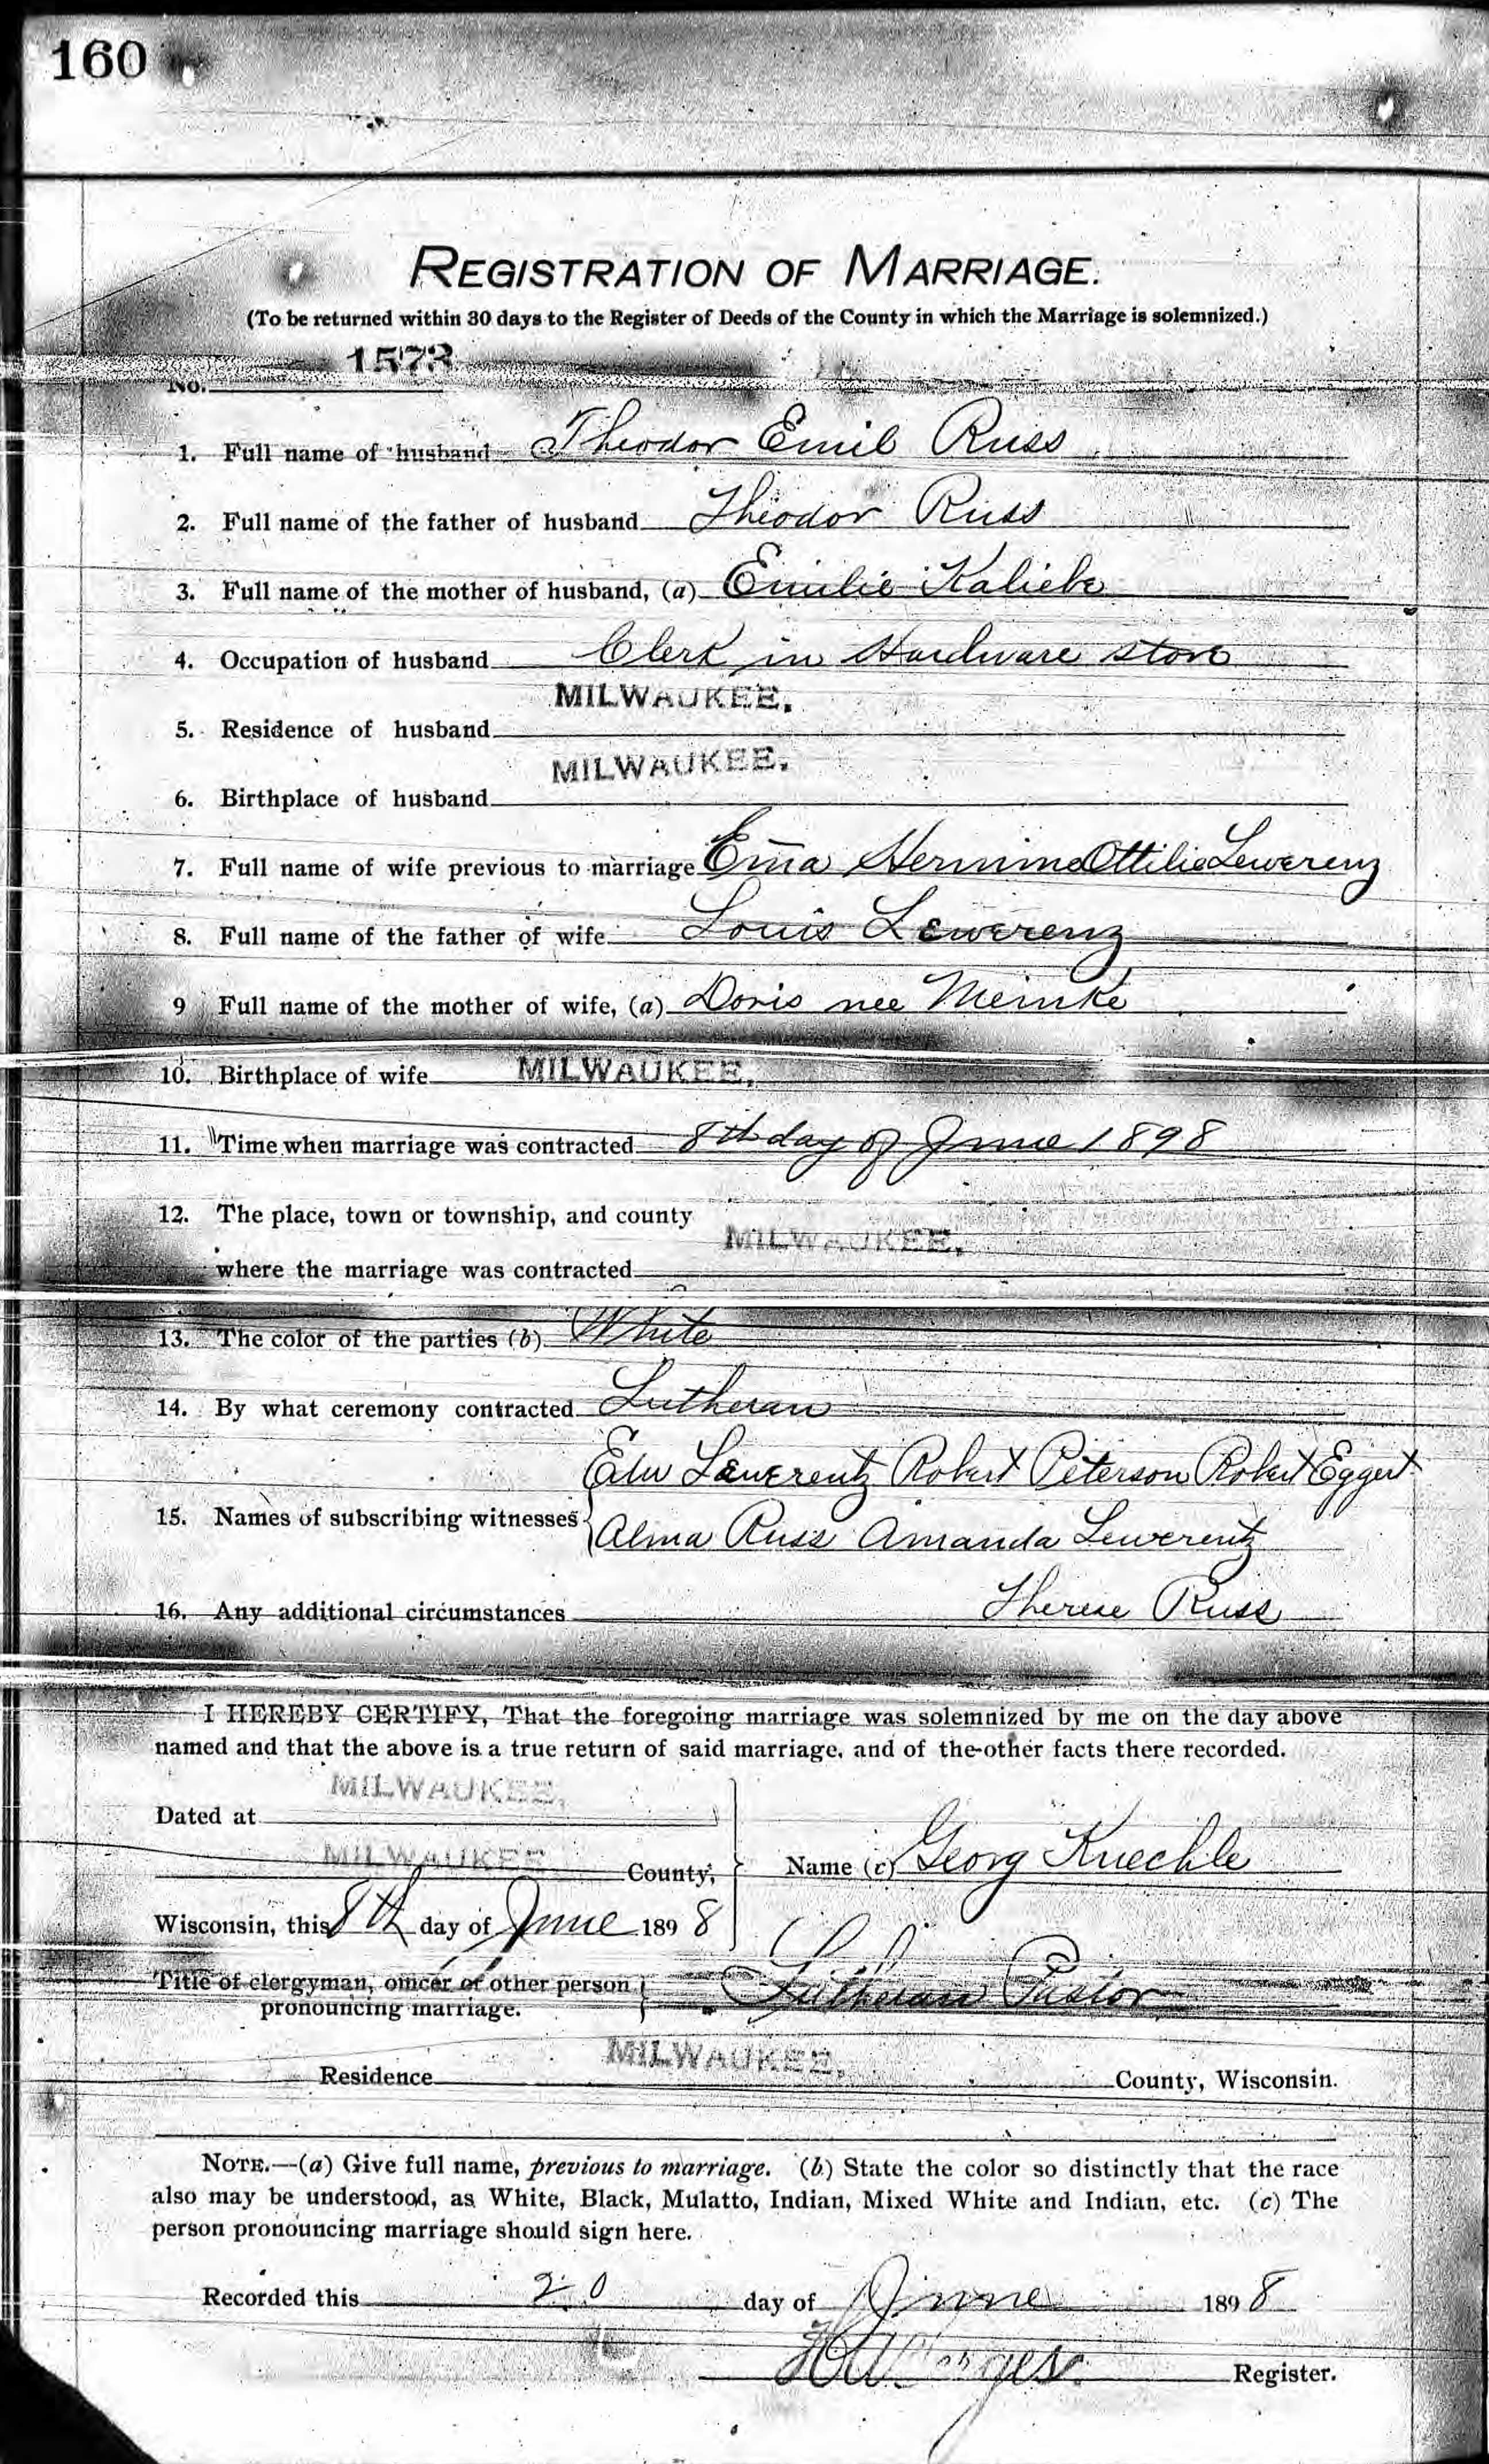 160
REGISTRATION OF MARRIAGE.
(To be returned within 30 days to the Register of Deeds of the County in which the Marriage is solemnized.)
No. 1573
1. Full name of husband Theodor Emil Russ
2. Full name of the father of husband Theodor Russ
3. Full name of the mother of husband, (a) Emilie Kaliebe
4. Occupation of husband Clerk in Hardware store
5. Residence of husband MILWAUKEE.
6. Birthplace of husband MILWAUKEE.
7. Full name of wife previous to marriage Em̄a Hermine Ottilie Lewerenz
8. Full name of the father of wife Louis Lewerenz
9 Full name of the mother of wife, (a) Doris nee Meinke
10. Birthplace of wife MILWAUKEE.
11. Time when marriage was contracted 8th day of June 1898
12. The place, town or township, and county
where the marriage was contracted MILWAUKEE.
13. The color of the parties (b) White
14. By what ceremony contracted Lutheran
Edw Lewerentz Robert Peterson Robert Eggert
15. Names of subscribing witnesses Alma Russ Amanda Lewerentz
16. Any additional circumstances Therese Russ
I HEREBY CERTIFY, That the foregoing marriage was solemnized by me on the day above
named and that the above is a true return of said marriage, and of the other facts there recorded.
Dated at MILWAUKEE.
MILWAUKEE County, Name (c) Georg Kuechle
Wisconsin, this 8th day of June 1898
Title of clergyman, officer or other person
pronouncing marriage. Lutheran Pastor
Residence MILWAUKEE. County, Wisconsin.
NOTE.—(a) Give full name, previous to marriage. (b) State the color so distinctly that the race
also may be understood, as White, Black, Mulatto, Indian, Mixed White and Indian, etc. (c) The
person pronouncing marriage should sign here.
Recorded this 20 day of June 1898
Register.